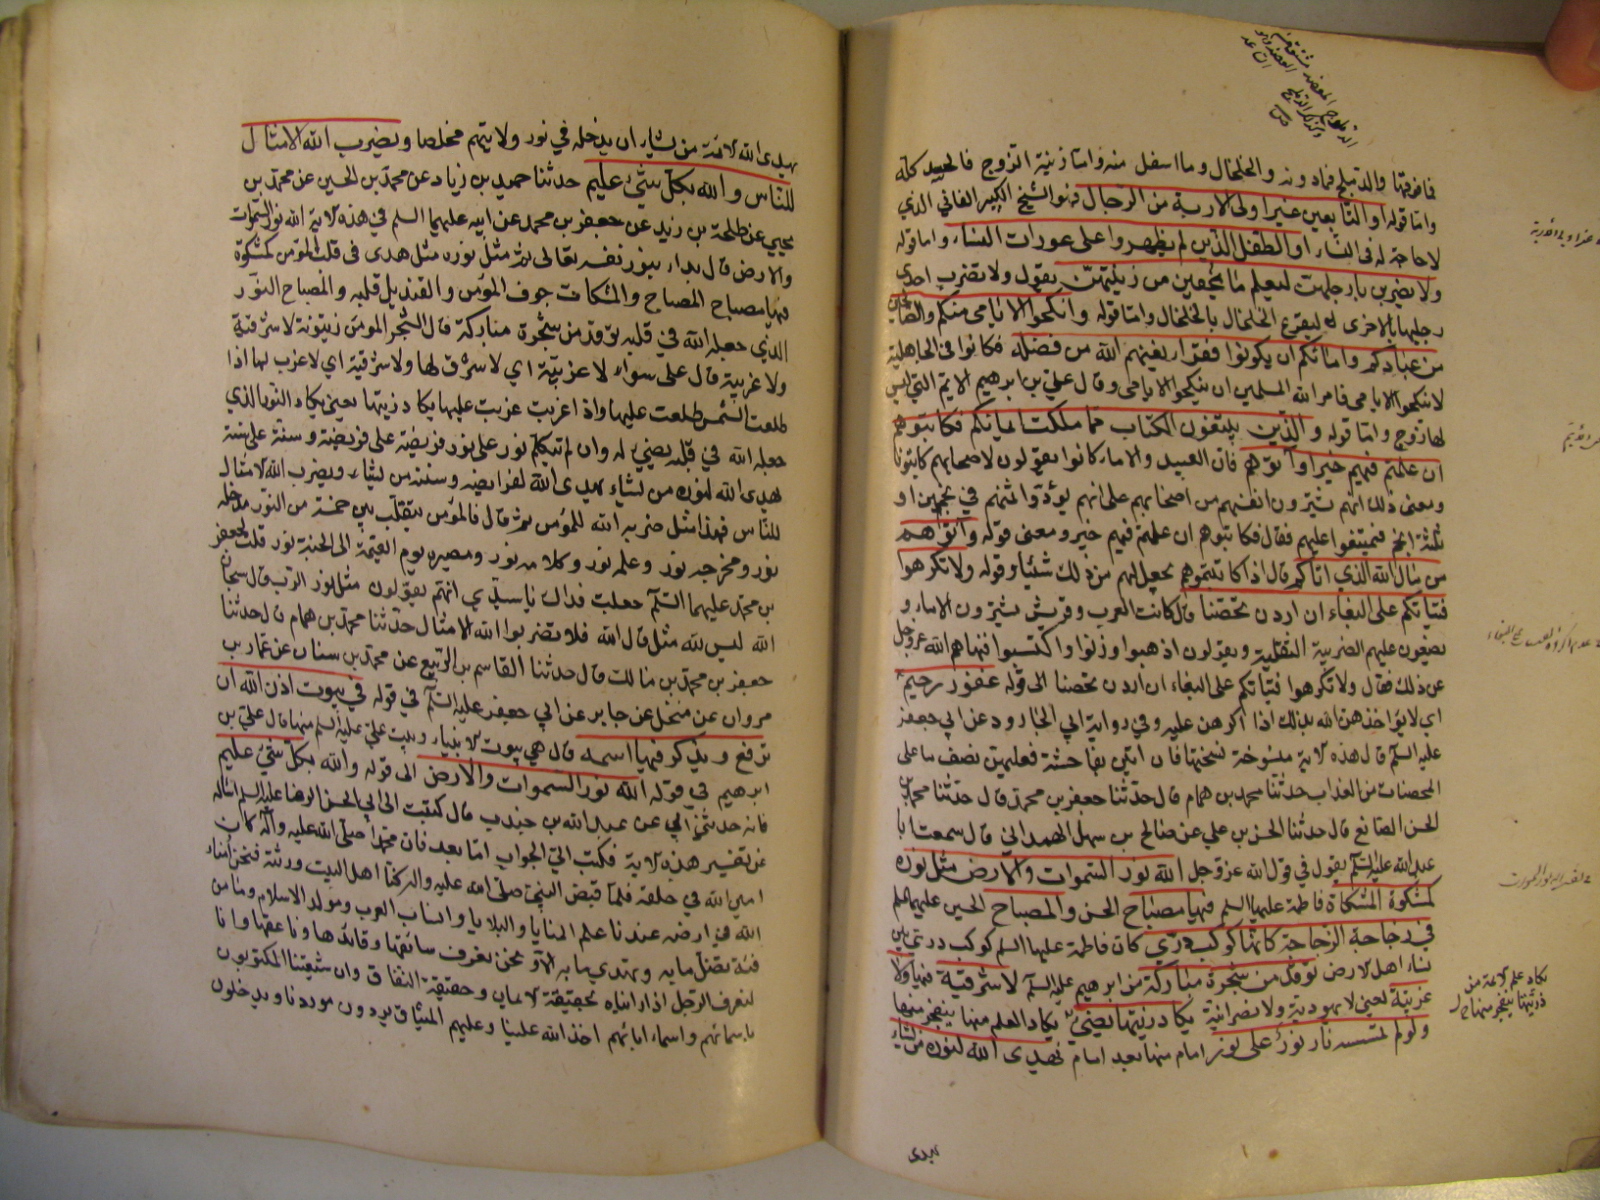 فما فوقها والدملج فما دونه والخلخال وما اسفل منه واما زينة الزوج فالجسد كله
واما قوله او التابعين غير اولى الاربة من الرجال فهو الشيخ الكبير الفاني الذي
لا حاجة له في النساء او الطفل الذين لم يظهروا على عورات النساء واما قوله
ولا يضربن بارجلهن ليعلم ما يخفين من زينتهن يقول ولا تضرب احدى
رجليها بالاخرى ليقرع الخلخال بالخلخال واما قوله وانكحوا الايامى منكم والصالحين
من عبادكم وامائكم ان يكونوا فقراء يغنيهم الله من فضله فكانوا في الجاهلية
لا ينكحوا الايامى فامر الله المسلمين ان ينكحوا الايامى وقال علي بن ابرهيم الايم التي ليس
لها زوج واما قوله والذين يبتغون الكتاب مما ملكت ايمانكم فكاتبوهم
ان علمتم فيهم خيرا وآتوهم فان العبيد والاماء كانوا يقولون لاصحابهم كاتبونا
ومعنى ذلك انهم يشترون انفسهم من اصحابهم على انهم يؤدوا ثمنهم في نجمين او
ثلثة انجم فيمتنعوا عليهم فقال فكاتبوهم ان علمتم فيهم خيرا ومعنى قوله وآتوهم
من مال الله الذي اتاكم قال اذا كاتبتموهم يجعل لهم من ذلك شيئا وقوله ولا تكرهوا
فتياتكم على البغاء ان اردن تحصنا قال كانت العرب وقريش يشترون الاماء و
يضعون عليهم الضريبة الثقيلة ويقولون اذهبوا وزنوا واكتسبوا فنهاهم الله عزوجل
عن ذلك فقال ولا تكرهوا فتياتكم على البغاء ان اردن تحصنا الى قوله غفور رحيم
اي لا يؤاخذهن الله بذلك اذا اكرهن عليه وفي رواية ابي الجارود عن ابي جعفر
عليه السلم قال هذه لاية منسوخة نسختها فان اتين بفاحشة فعليهن نصف ما على
المحصنات من العذاب حدثنا محمد بن همام قال حدثنا جعفر بن محمد قال حدثنا محمد بن
الحسن الصائغ قال حدثنا الحسن بن علي عن صالح بن سهل الهمداني قال سمعت ابا
عبد الله عليه السلم يقول في قول الله عزوجل الله نور السموات والارض مثل نوره
كمشكوة المشكاة فاطمة عليها السلم فيها مصباح الحسن والمصباح الحسين عليهما السلم
في زجاجة الزجاجة كانها كوكب دري كان فاطمة عليها السلم كوكب دري بين
نساء اهل لارض توقد من شجرة مباركة من ابرهيم عليه السلم لا شرقية ولا
غربية يعني لا يهودية ولا نصرانية يكاد زيتها يضيئ يكاد العلم منها ينفجر منها
ولو لم تمسسه نار نور على نور امام منها بعد امام يهدى الله لنوره من يشاء
يكاد علم لائمة من
ذريتها ينفجر منها
يهدى
يهدى الله لائمة من يشاء ان يدخله في نور ولايتهم مخلصا ويضرب الله الامثال
للناس والله بكل شيئ عليم حدثنا حميد بن زياد عن محمد بن الحسين عن محمد بن
يحيى عن طلحة بن زيد عن جعفر بن محمد عن ابيه عليهما السلم في هذه لاية الله نور السموات
والارض قال بداء بنور نفسه تعالى مثل نوره مثل هدى في قلب المؤمن كمشكوة
فيها مصباح المصباح والمشكات جوف المؤمن والقنديل قلبه والمصباح النور
الذي جعله الله في قلبه توقد من شجرة مباركة قال الشجر المؤمن زيتونة لا شرقية
ولا غربية قال على سواء لا غربية اي لا شرق لها ولا شرقية اي لا غرب لها اذا
طلعت الشمس طلعت عليها واذا غربت غربت عليها يكاد زيتها يعني يكاد النور الذي
جعله الله في قلبه يضيئ له وان لم يتكلم نور على نور فريضة على فريضة وسنة على سنة
يهدى الله لنوره من يشاء يهدى الله لفرايضه وسننه من يشاء ويضرب الله الامثال
للناس فهذا مثل ضربه الله للمؤمن ثم قال فالمؤمن يتقلب في خمسة من النور مدخله
نور ومخرجه نور وعلمه نور وكلامه نور ومصيره يوم القيمة الى الجنة نور قلت لجعفر
بن محمد عليهما السلم جعلت فداك يا سيدي انهم يقولون مثل نور الرب قال سبحان
الله ليس لله مثل قال الله فلا تضربوا الله الامثال حدثنا محمد بن همام قال حدثنا
جعفر بن محمد بن مالك قال حدثنا القاسم بن الربيع عن محمد بن سنان عن عمار بن
مروان عن منخل عن جابر عن ابي جعفر عليه السلم في قوله في بيوت اذن الله ان
ترفع ويذكر فيها اسمه قال هي بيوت لانبياء وبيت علي عليه السلم منها قال علي بن
ابرهيم في قوله الله نور السموات والارض الى قوله والله بكل شيئ عليم
فانه حدثني ابي عن عبد الله بن جندب قال كتبت الى ابي الحسن الرضا عليه السلم اسأله
عن تفسير هذه لاية فكتب الي الجواب اما بعد فان محمدا صلى الله عليه وآله كان
امين الله في خلقه فلما قبض النبي صلى الله عليه وآله كنا اهل البيت ورثته فنحن امناء
الله في ارضه عندنا علم المنايا والبلايا وانساب العرب ومولد الاسلام وما من
فئة تضل مايه وتهتدي مايه الا ونحن نعرف سائقها وقائدها وناعقها وانا
لنعرف الرجل اذا رايناه بحقيقة لايمان وحقيقة النفاق وان شيعتنا المكتوبون
باسمائهم واسماء ابائهم اخذ الله علينا وعليهم الميثاق يردون موردنا ويدخلون